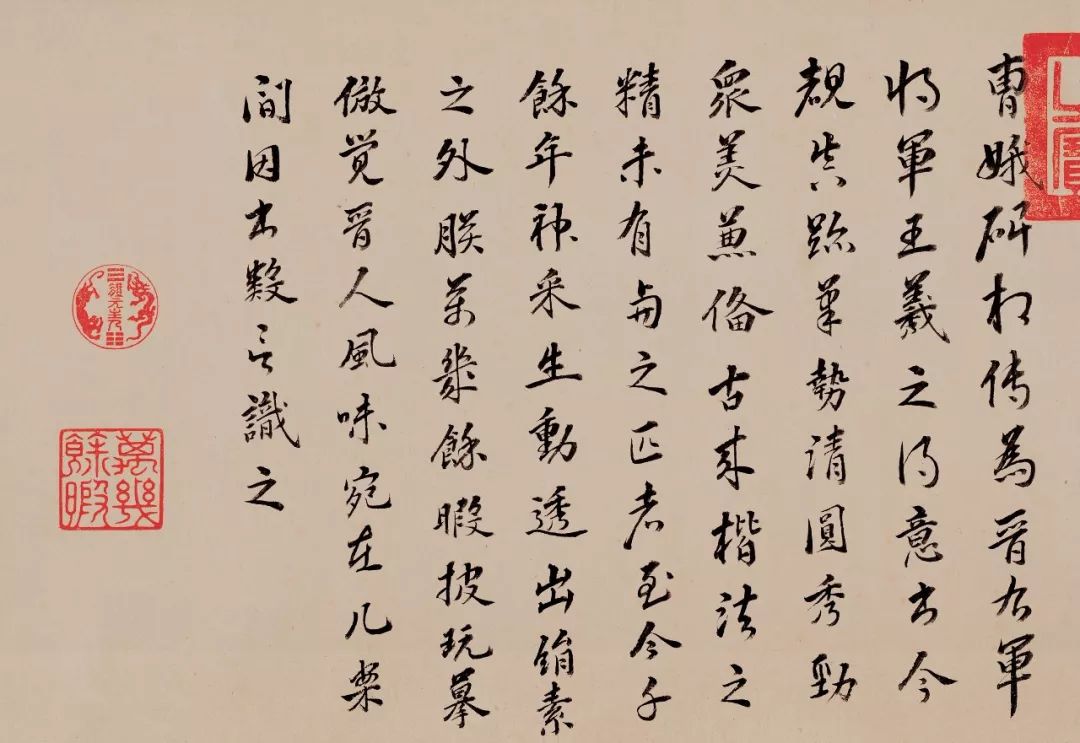 曹娥碑相传為晉右軍
将軍王羲之得意书今
覩真跡筆勢清圓秀勁
衆美兼俻古来楷法之
精未有与之匹者至今千
餘年神采生動透出絹素
之外朕萬幾餘暇披玩摹
倣覚晉人風味宛在几案
間因书數言識之
萬幾
餘暇